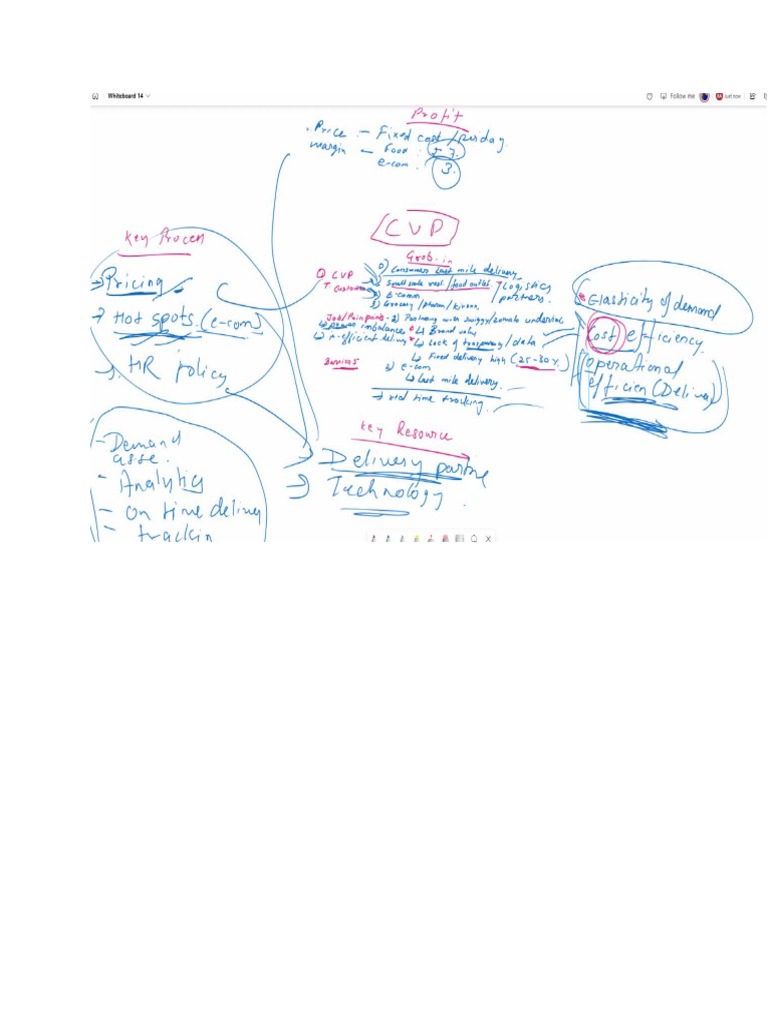 Whiteboard 14
Follow me
Just now
Profit
Price - Fixed cost / per day
margin - Food : 5-7.
e-com : 3.
CVP
Grab-in
Key Process
→ Pricing
→ Hot spots (e-com)
HR policy
CVP
T. Customer
0) Consumer Last mile delivery
Small scale rest / food outlets
Logistics
partners.
2) E-comm
3) Grocery / pharm / kirana
Job/Pain points - 2) Partnering with swiggy/zomato
power imbalance
↳ Brand value
delivery
↳ Lack of / data
↳ Fixed delivery high (25-30%)
Services
3) e-com
↳ Last mile delivery.
→ real time tracking.
* Elasticity of demand
Cost efficiency
Operational
efficien (Delivery)
Key Resource
→ Delivery partne
→ Technology
- Demand
asse.
- Analytics
- on time delivery
- trackin